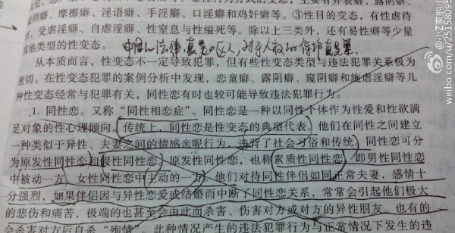 癖、摩擦癖、淫语癖、手淫癖、口淫癖和鸡奸癖等。③性目的变态，有性虐待
、受虐淫癖、自虐淫癖、性窒息与性缢死等。除以上三类外，还有易性癖等少量
类型的性变态。
从本质而言，性变态不一定导致犯罪，但有些性变态类型与违法犯罪关系极为
密切。在性变态犯罪的案例分析中发现，恋童癖、露阴癖、窥阴癖和施虐淫癖等几
种性变态经常与犯罪有关，同性恋有时也较可能导致违法犯罪行为。
1. 同性恋。又称“同性相恋症”。同性恋是一种以同性个体作为性爱和性欲满
足对象的性心理倾向。传统上，同性恋是性变态的典型代表。他们在同性之间建立
一种类似于异性、夫妻之间的情感亲昵行为，违背了社会习俗和传统。同性恋可分
为原发性同性恋和假性同性恋。原发性同性恋，也称素质性同性恋，即男性同性恋
中被动一方，女性同性恋中主动的一方，他们对待同性伴侣如同正常夫妻，感情十
分强烈，如果伴侣因与异性恋爱或结婚而中断了同性恋关系，常常会引起他们极大
的悲伤和痛苦，极端的也甚至会由此而杀害、伤害对方或对方的异性朋友，也有的
会杀害对方后自杀“殉情”。此种情况产生的违法犯罪行为与正常情况下发生的违
weibo.com/u/251580